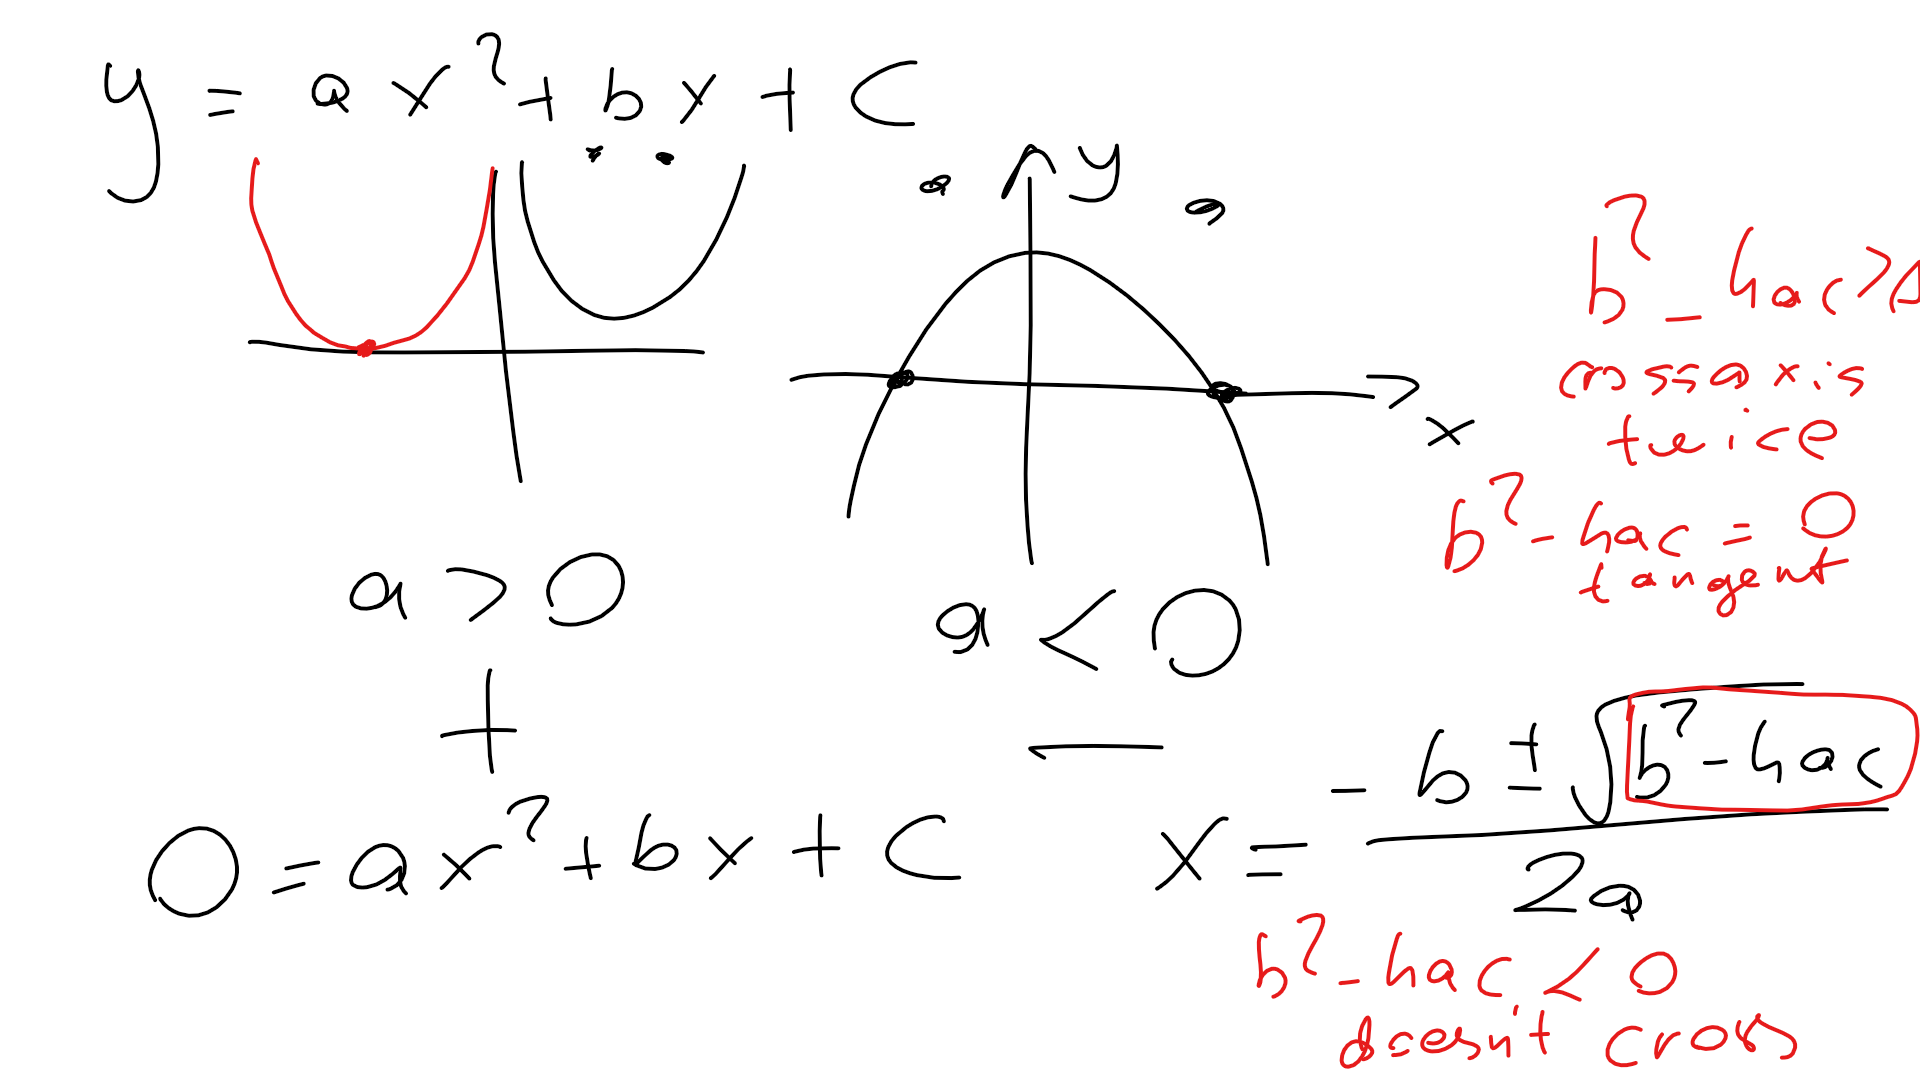 y = ax² + bx + c
y
x
b² - 4ac > 0
cross axis
twice
b² - 4ac = 0
tangent
a > 0
a < 0
+
-
0 = ax² + bx + c
x = (-b ± √(b² - 4ac)) / 2a
b² - 4ac < 0
doesn't cross